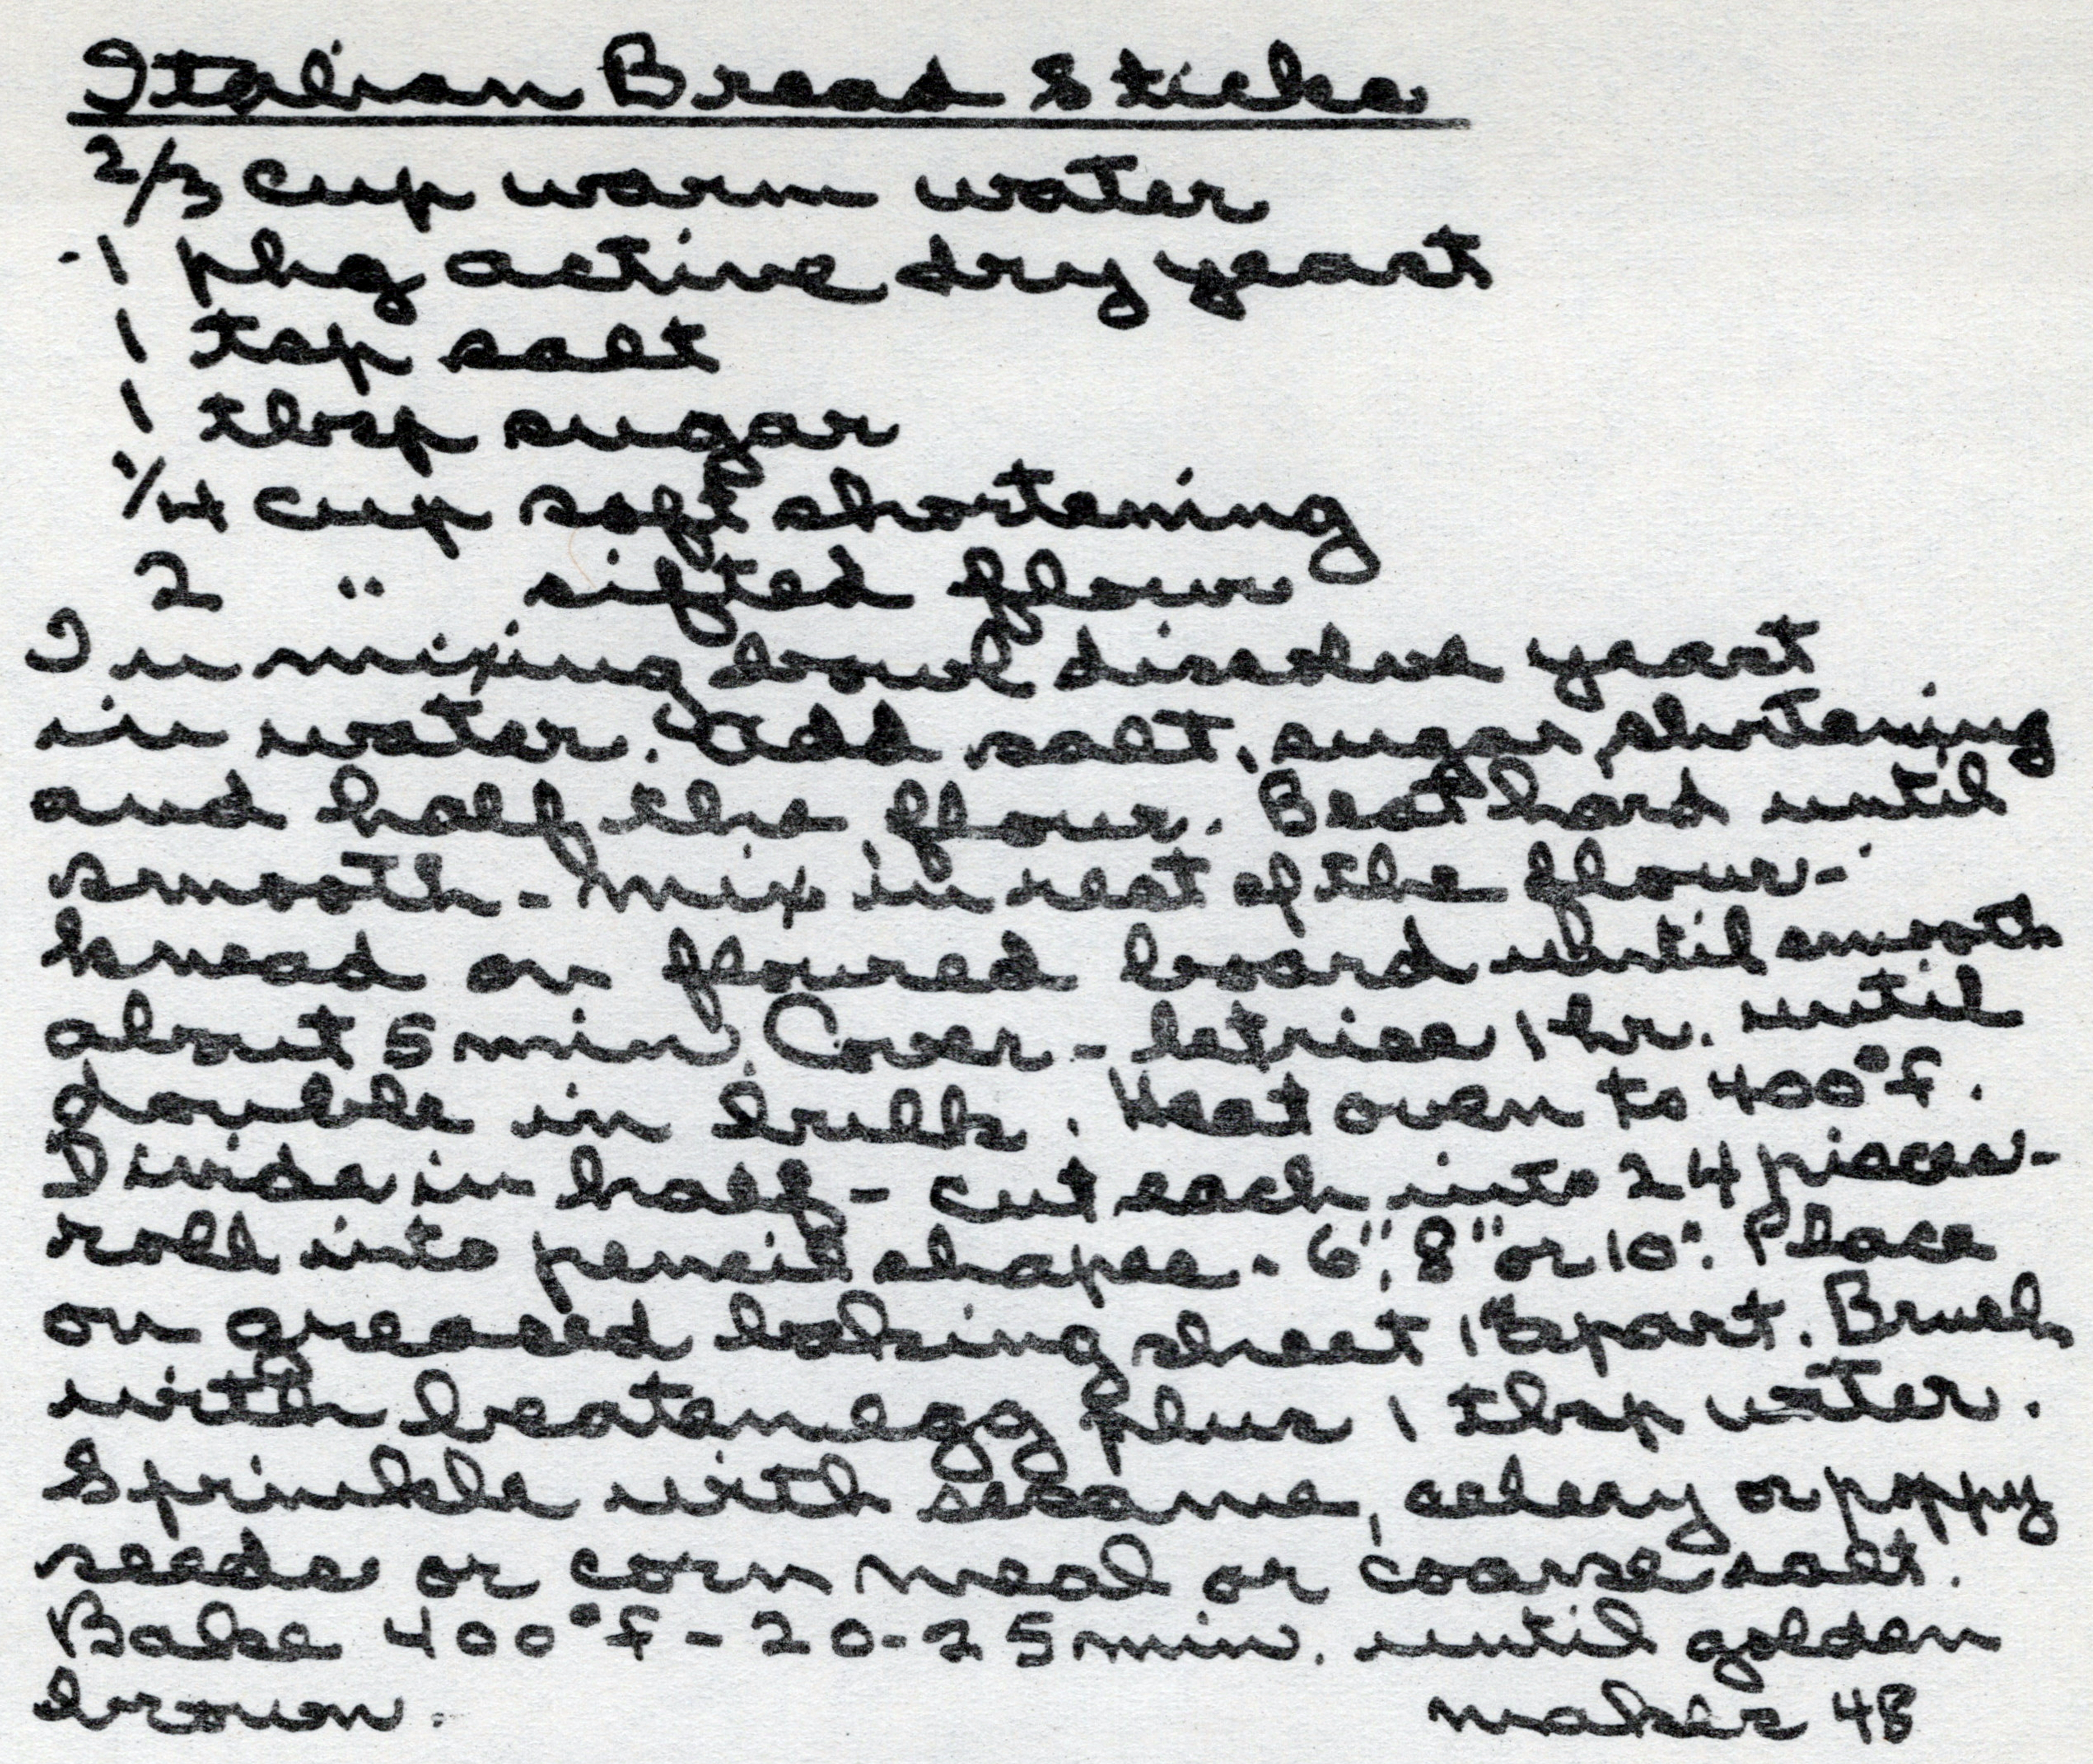 Italian Bread Sticks
2/3 cup warm water
1 pkg active dry yeast
1 tsp salt
1 tbsp sugar
1/4 cup soft shortening
2 " sifted flour
In mixing bowl dissolve yeast
in water. Add salt, sugar, shortening
and half the flour. Beat hard until
smooth - Mix in rest of the flour -
knead on floured board until smooth
about 5 min. Cover - let rise 1 hr. until
double in bulk. Heat oven to 400°f.
Divide in half - cut each into 24 pieces -
roll into pencil shapes - 6", 8" or 10". Place
on greased baking sheet 1" apart. Brush
with beaten egg plus 1 tbsp water.
Sprinkle with sesame, celery or poppy
seeds or corn meal or coarse salt.
Bake 400°f - 20-25 min. until golden
brown. makes 48